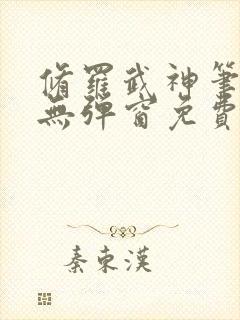 脩羅武神筆
無彈窗免費
秦東漢